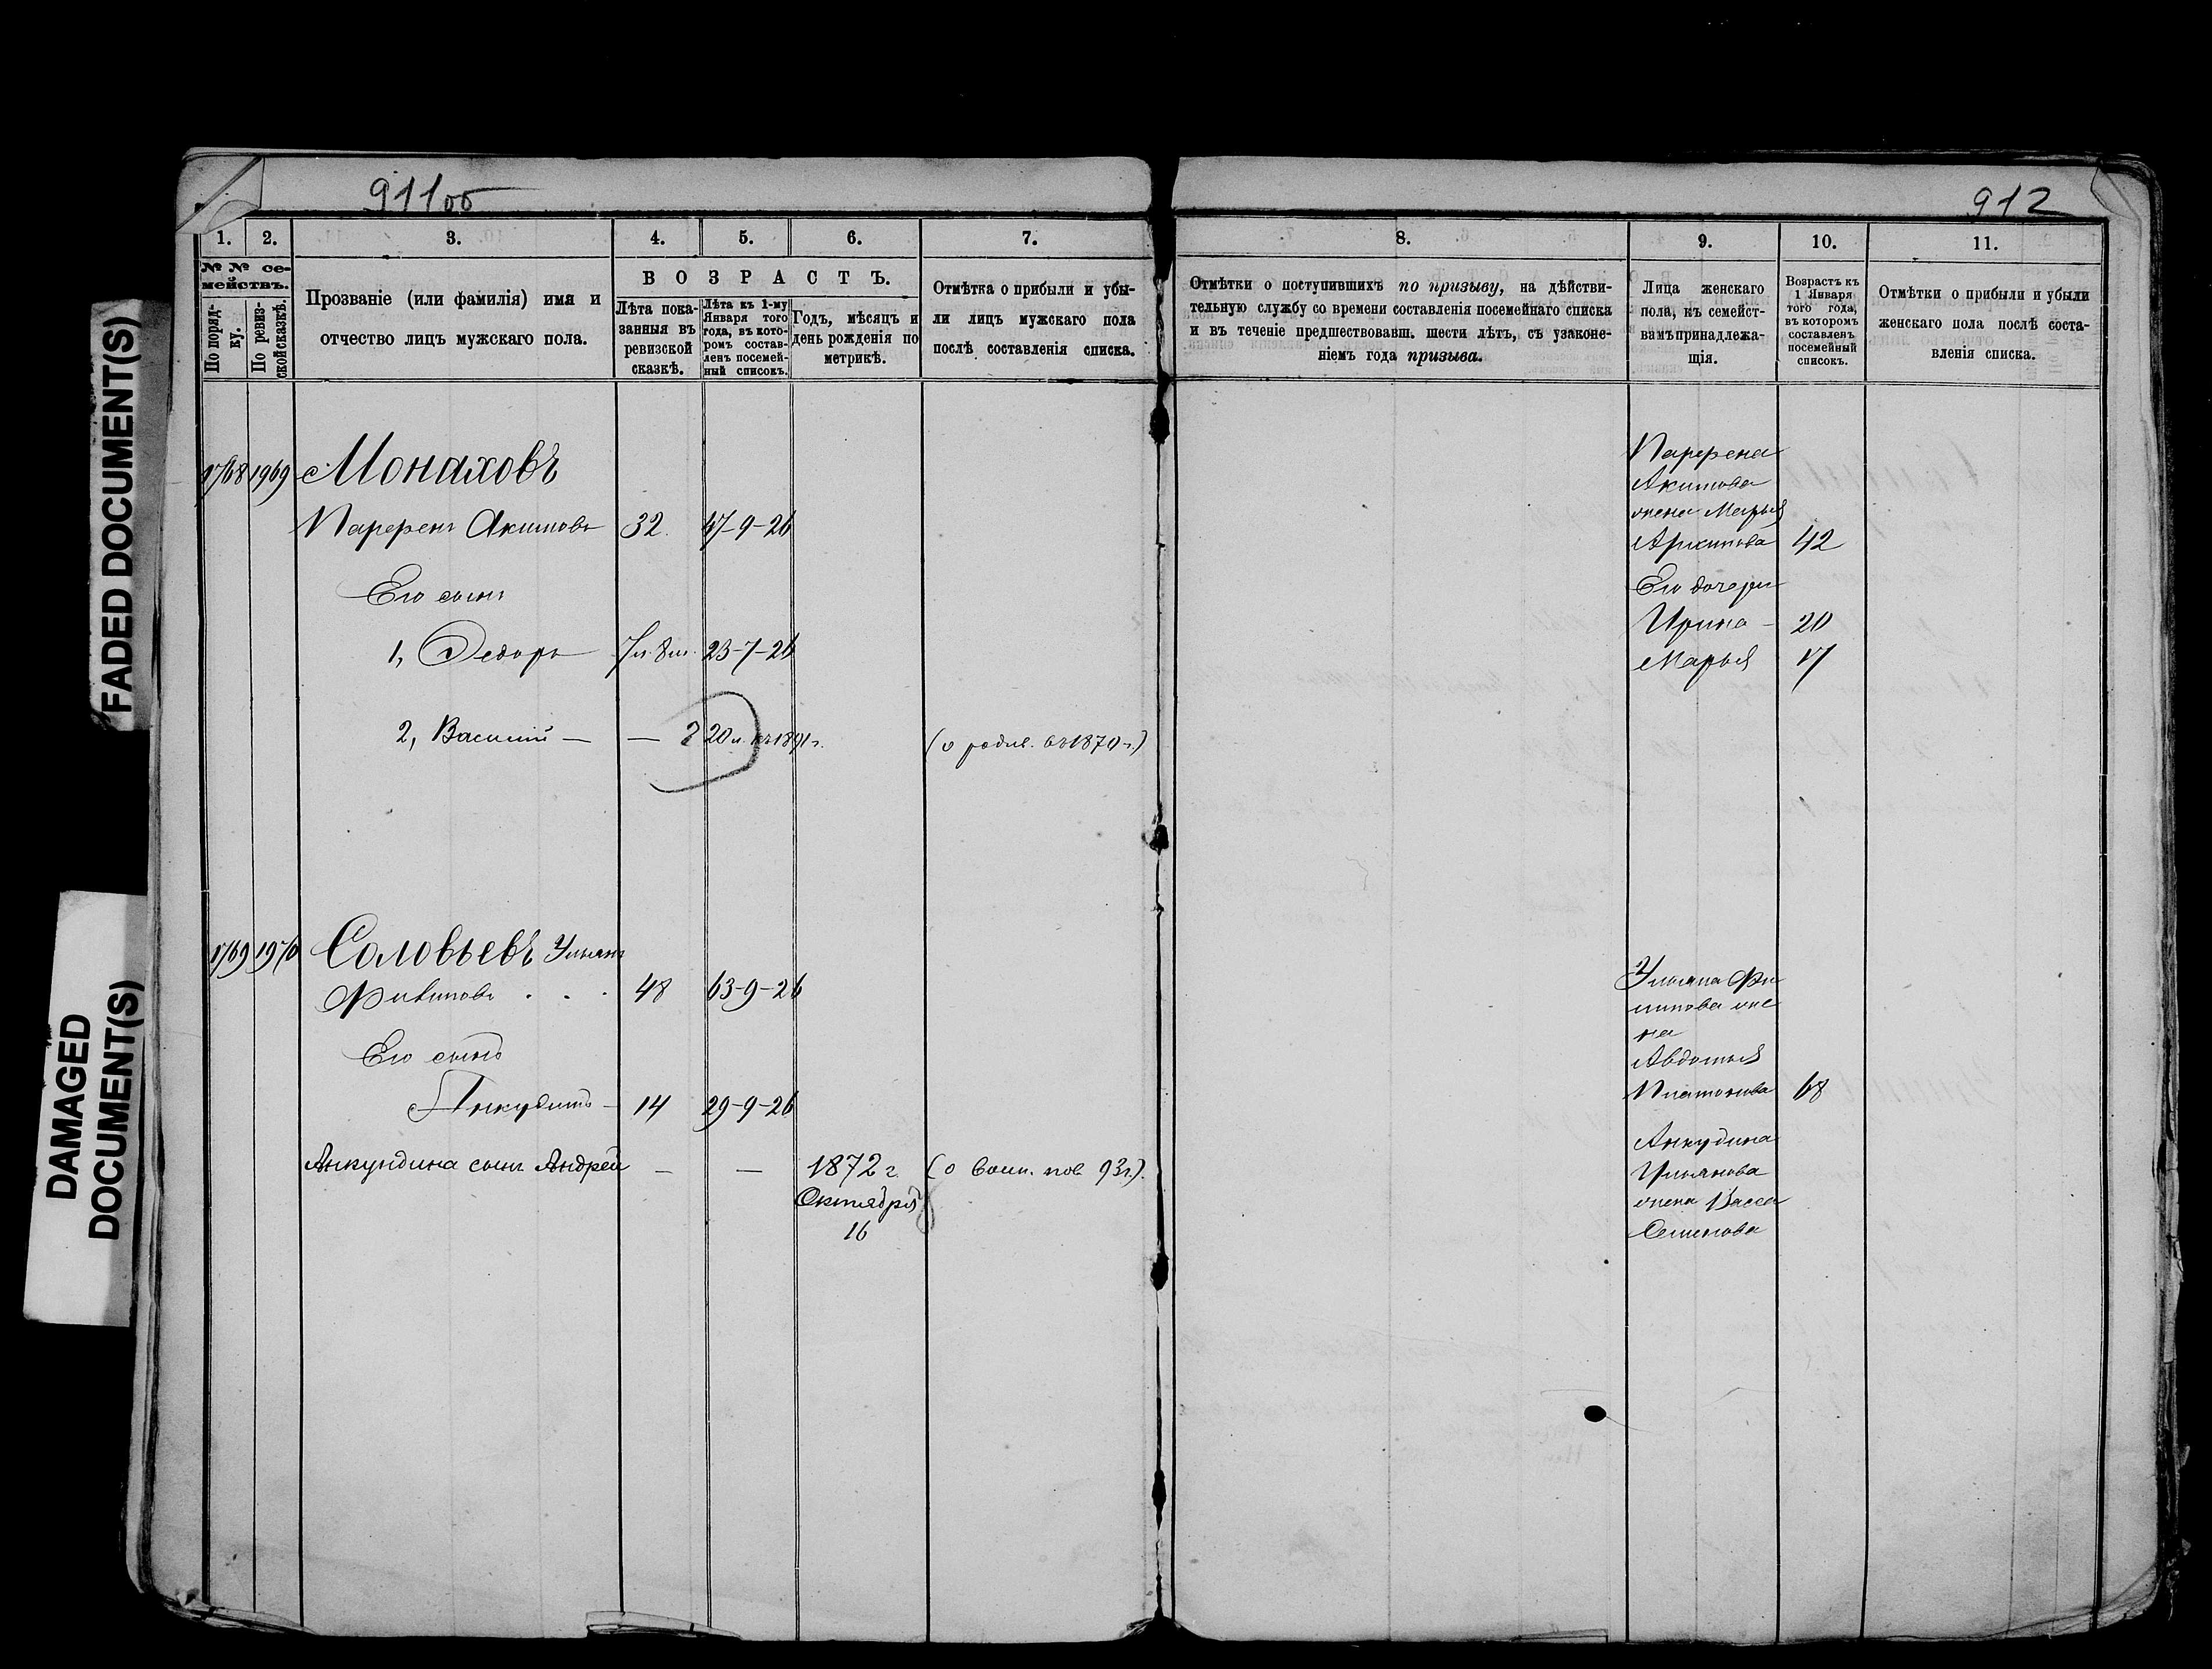 FADED DOCUMENT(S)
DAMAGED
DOCUMENT(S)
911об
1. 2. 3. 4. 5. 6. 7.
№ № се-
мействъ.
По поряд-
ку.
По ревиз-
ской сказкѣ.
Прозваніе (или фамилія) имя и
отчество лицъ мужскаго пола.
ВОЗРАСТЪ.
Лѣта пока-
занныя въ
ревизской
сказкѣ.
Лѣта къ 1-му
Января того
года, въ кото-
ромъ состав-
ленъ посемей-
ный списокъ.
Годъ, мѣсяцъ и
день рожденія по
метрикѣ.
Отмѣтка о прибыли и убы-
ли лицъ мужскаго пола
послѣ составленія списка.
1768 1969 Монаховъ
Парфенъ Акимовъ 32. 47-9-26
Его сынъ
1, Федоръ 7л. 8м. 23-7-26
2, Василий — — 2 20 л. къ 1891 г. (о родив. въ 1870 г.)
1769 1970 Соловьевъ Ульянъ
Филиповъ . . . 48 63-9-26
Его сынъ
Анкудинъ 14 29-9-26
Анкундина сынъ Андрей — — 1872 г. (о воин. пов 93 г.).
Октября
16
912
8. 9. 10. 11.
Отмѣтки о поступившихъ по призыву, на дѣйстви-
тельную службу со времени составленія посемейнаго списка
и въ теченіе предшествовавш. шести лѣтъ, съ узаконе-
ніемъ года призыва.
Лица женскаго
пола, къ семейст-
вамъ принадлежа-
щія.
Возрастъ къ
1 Января
того года,
въ которомъ
составленъ
посемейный
списокъ.
Отмѣтки о прибыли и убыли
женскаго пола послѣ соста-
вленія списка.
Парфена
Акимова
жена Марья
Архипова 42
Его дочери
Ирина - 20
Марья 17
Ульяна Фи
липова же
на
Авдотья
Платонова 68
Анкудина
Ульянова
жена Васса
Семенова